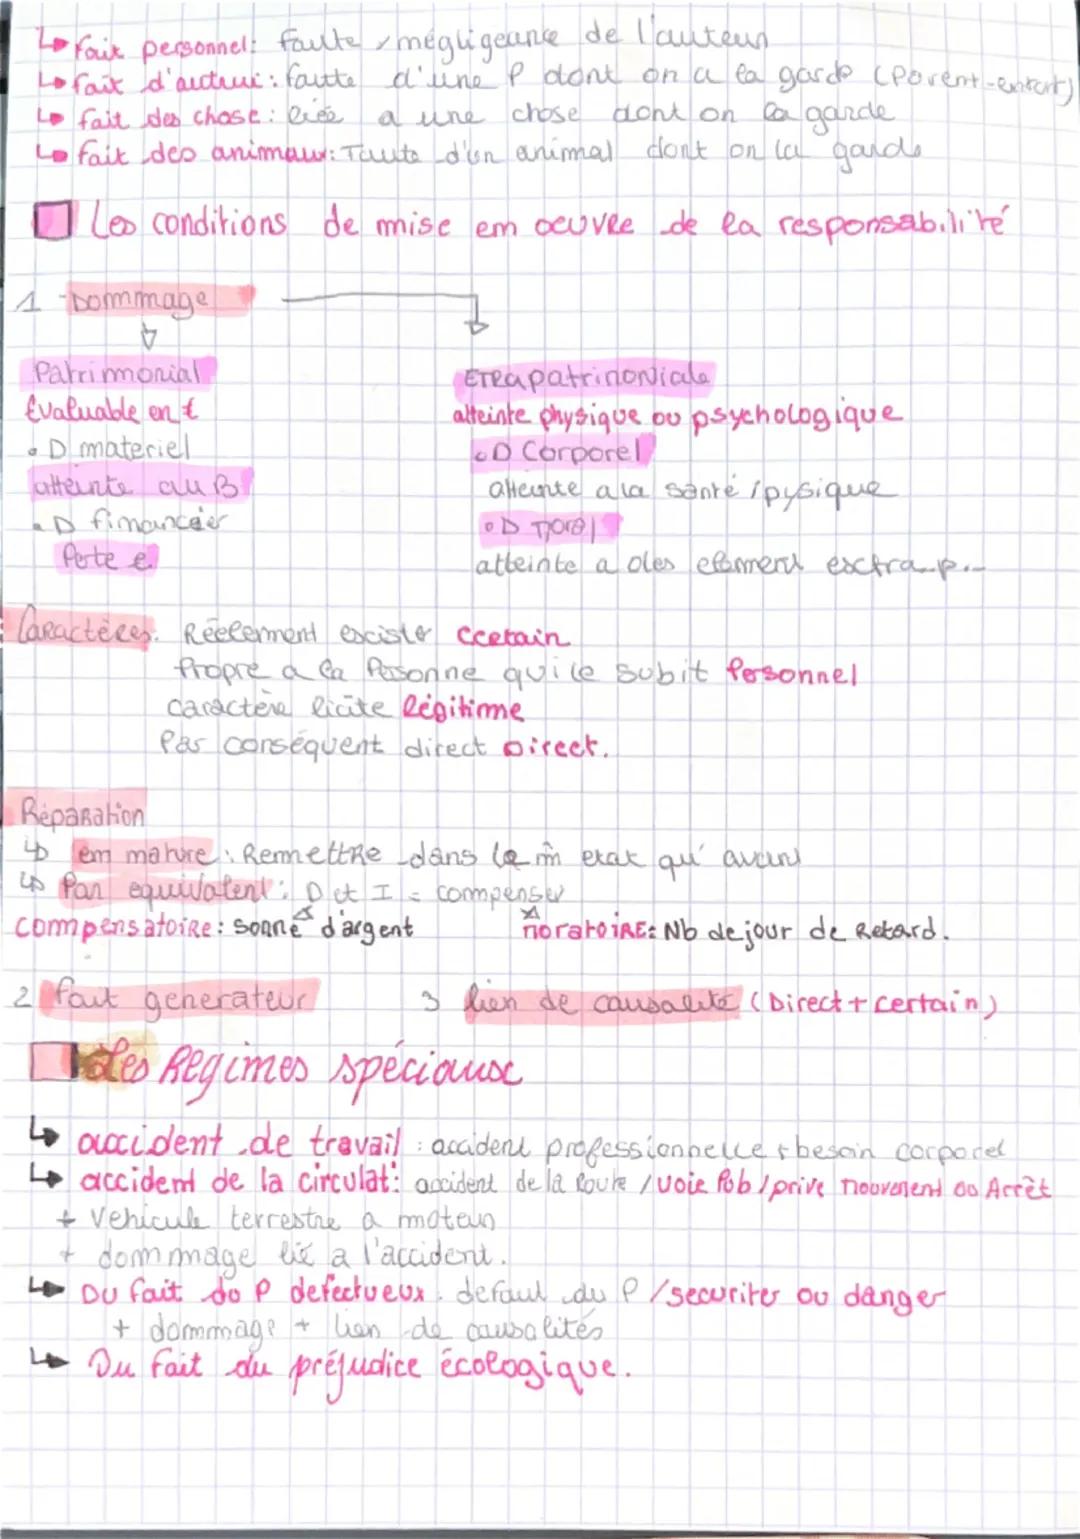 ↳ fait personnel: faulte / mégligeance de l'auteur
↳ fait d'autrui: faute d'une P dont on a la garde (Parent-enfant)
↳ fait des chose: liée a une chose dont on la garde
↳ fait des animaux: Faute d'un animal dont on la garde
Les conditions de mise en oeuvre de la responsabilité
1 - Dommage
Patrimonial
Extrapatrimoniale
Evaluable en €
atteinte physique ou psychologique
• D materiel
• D Corporel
atteinte au B
atteinte a la santé / pysique
• D financier
• D Moral
Perte €
atteinte a des element extra.p...
Caractères. Réelement existe Ccetain
Propre a la Personne qui le subit Personnel
caractère licite légitime
Par conséquent direct Direct.
Réparation
↳ en nature: Remettre dans le m̂ etat qu'avant
↳ Par equivalent: D et I = compenser
Compensatoire: somme d'argent
MoratoiRE: Nb de jour de Retard.
2 fait generateur
3 lien de causalité (Direct + certain)
Les Régimes spéciaux
↳ accident de travail: accident professionnelle + besoin corporel
↳ accident de la circulat°: accident de la Route / voie Pub / privé Mouvement ou Arrêt
+ Vehicule terrestre a moteur
+ dommage lié a l'accident.
↳ Du fait du P defectueux. defaut du P / securiter ou danger
+ dommage + lien de causalités
↳ Du fait du préjudice écologique.